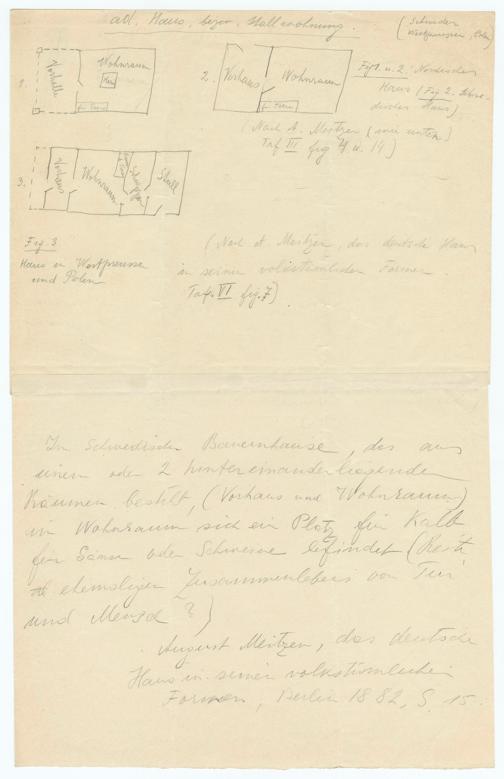 ad. Haus, bezw. Stallwohnung.
(Schweden
Westpreussen, Polen)
1.
Vorhalle
Wohnraum
Herd
2.
Vorhaus
Wohnraum
Fig 1. u. 2. Nordisches
Haus (Fig 2. Schwe-
disches Haus)
(Nach A. Meitzen (wie unten)
Taf III fig u. 14)
3.
Vorhaus
Wohnraum
Stall
Fig. 3
Haus in Westpreussen
und Polen
(Nach A. Meitzen, das deutsche Haus
in seinen volkstümlichen Formen.
Taf. VI fig. 7)
In Schwedischen Bauernhause, das aus
einem oder 2 hintereinanderliegenden
Räumen besteht, (Vorhaus und Wohnraum)
im Wohnraum sich ein Platz für Kalb
für oder Schweine befindet (Rest
ehemaligen Zusammenlebens von Tier
und Mensch?)
August Meitzen, das deutsche
Haus in seinen volkstümlichen
Formen, Berlin 1882, S. 15.